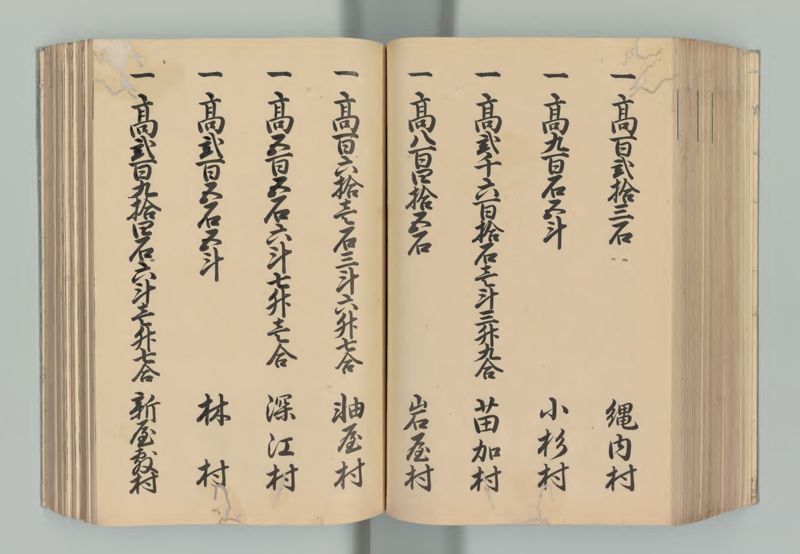 一 高百弐拾三石 縄内村
一 高九百石五斗 小杉村
一 高弐千六百拾石壱斗三升九合 苗加村
一 高八百四拾五石 岩屋村
一 高百六拾壱石三斗六升七合 油屋村
一 高五百五石六斗七升壱合 深江村
一 高弐百五石五斗 林村
一 高弐百九拾四石六斗壱升七合 新屋敷村